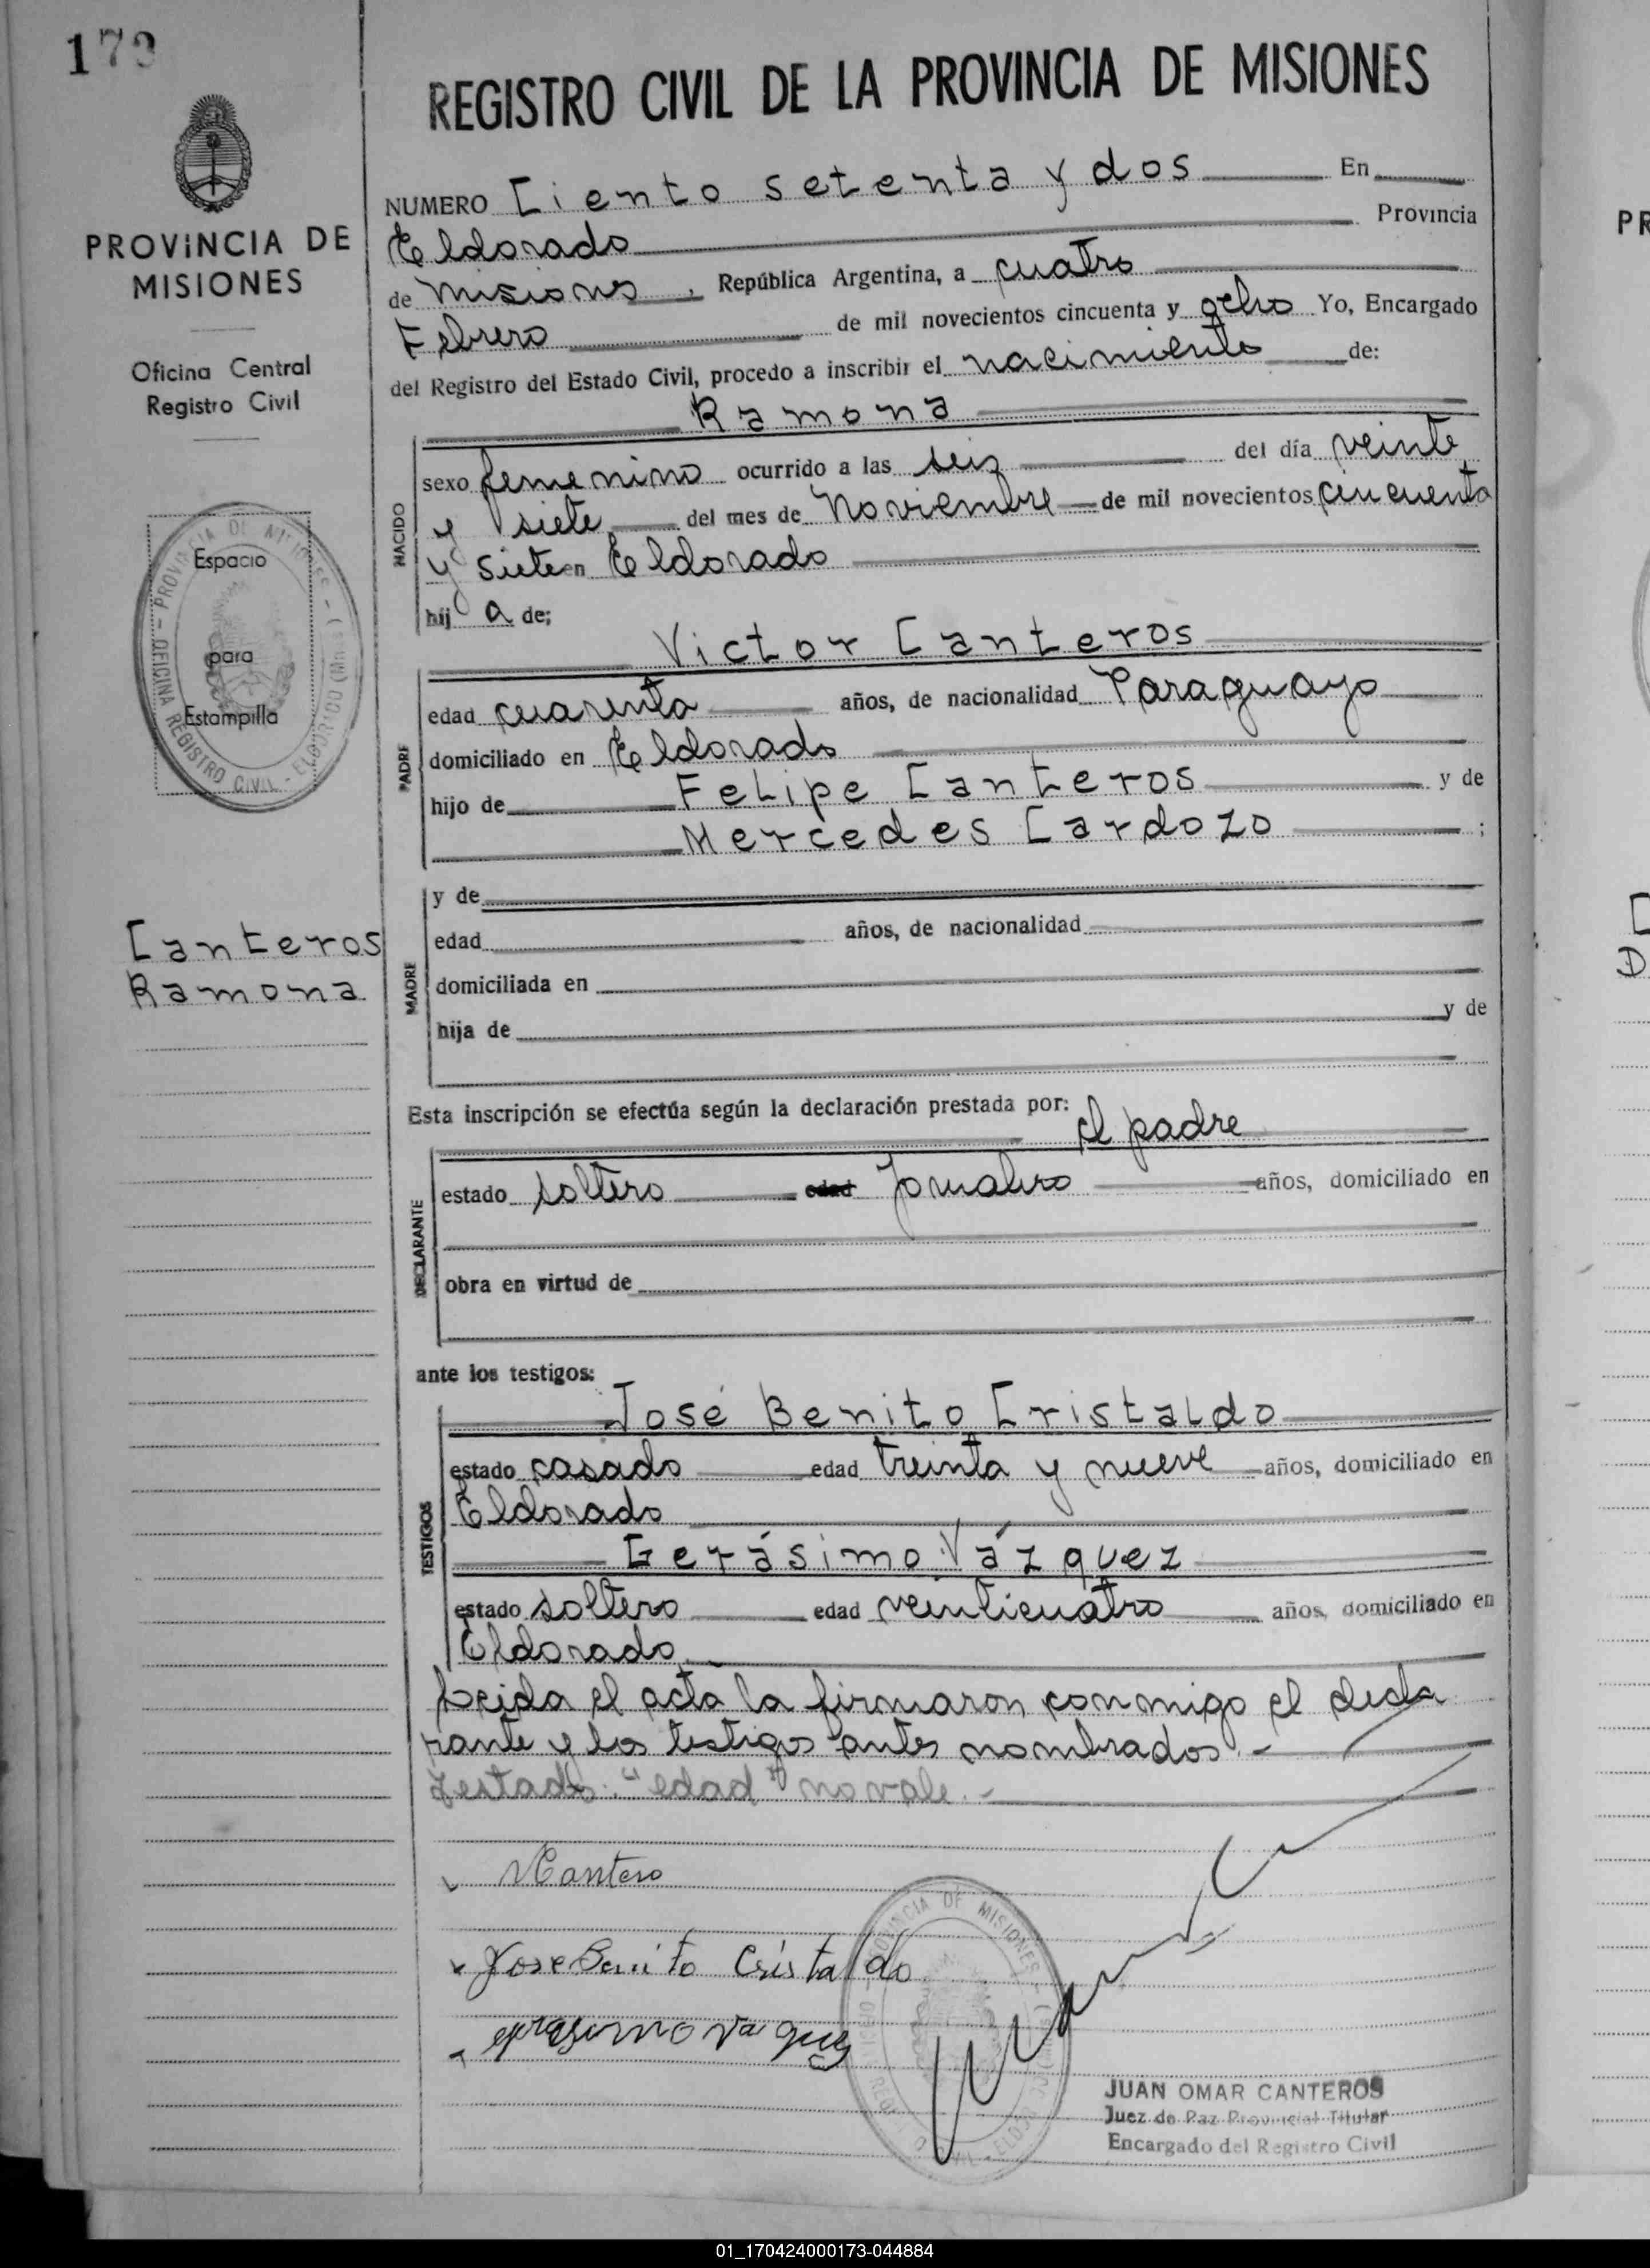 173
REGISTRO CIVIL DE LA PROVINCIA DE MISIONES
PROVINCIA DE
MISIONES
Oficina Central
Registro Civil
Espacio
para
Estampilla
OFICINA REGISTRO CIVIL - ELDORADO
Canteros
Ramona
NUMERO Ciento setenta y dos En
Eldorado Provincia
de Misiones, República Argentina, a cuatro
Febrero de mil novecientos cincuenta y ocho Yo, Encargado
del Registro del Estado Civil, procedo a inscribir el nacimiento de:
Ramona
NACIDO
sexo femenino ocurrido a las seis del día veinte
y siete del mes de Noviembre de mil novecientos cincuenta
y siete en Eldorado
hij a de;
Victor Canteros
PADRE
edad cuarenta años, de nacionalidad Paraguayo
domiciliado en Eldorado
hijo de Felipe Canteros y de
Mercedes Cardozo ;
MADRE
y de
edad años, de nacionalidad
domiciliada en
hija de y de
Esta inscripción se efectúa según la declaración prestada por:
el padre
DECLARANTE
estado soltero edad Jornalero años, domiciliado en
obra en virtud de
ante los testigos:
José Benito Cristaldo
TESTIGOS
estado casado edad treinta y nueve años, domiciliado en
Eldorado
Gerásimo Vázquez
estado soltero edad veinticuatro años, domiciliado en
Eldorado
Leida el acta la firmaron conmigo el decla
rante y los testigos antes nombrados.-
Testado: "edad" no vale.-
VCantero
Jose Benito Cristaldo
PROVINCIA DE MISIONES
JUAN OMAR CANTEROS
Juez de Paz Provincial Titular
Encargado del Registro Civil
PR
D
01_170424000173-044884